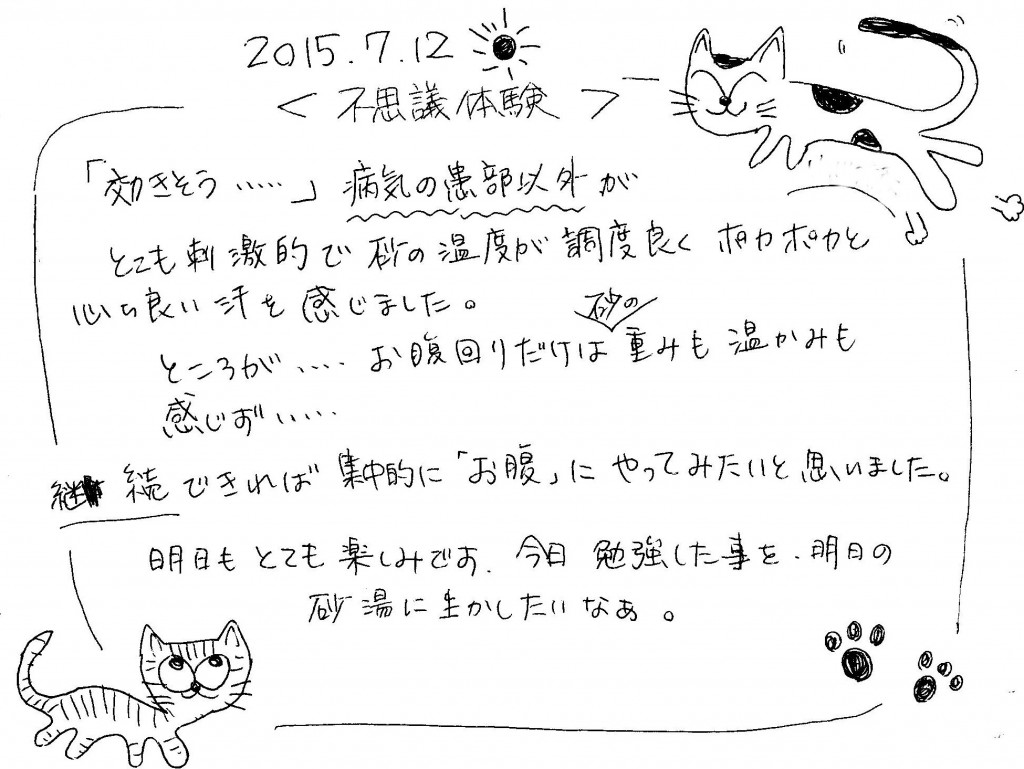 2015.7.12
<不思議体験>
「効きそう……」病気の患部以外が
とても刺激的で砂の温度が調度良くポカポカと
心ち良い汗を感じました。
砂の
ところが…. お腹回りだけは重みも温かみも
感じず‥‥
継続できれば集中的に「お腹」にやってみたいと思いました。
明日もとても楽しみです、今日勉強した事を、明日の
砂湯に生かしたいなぁ。